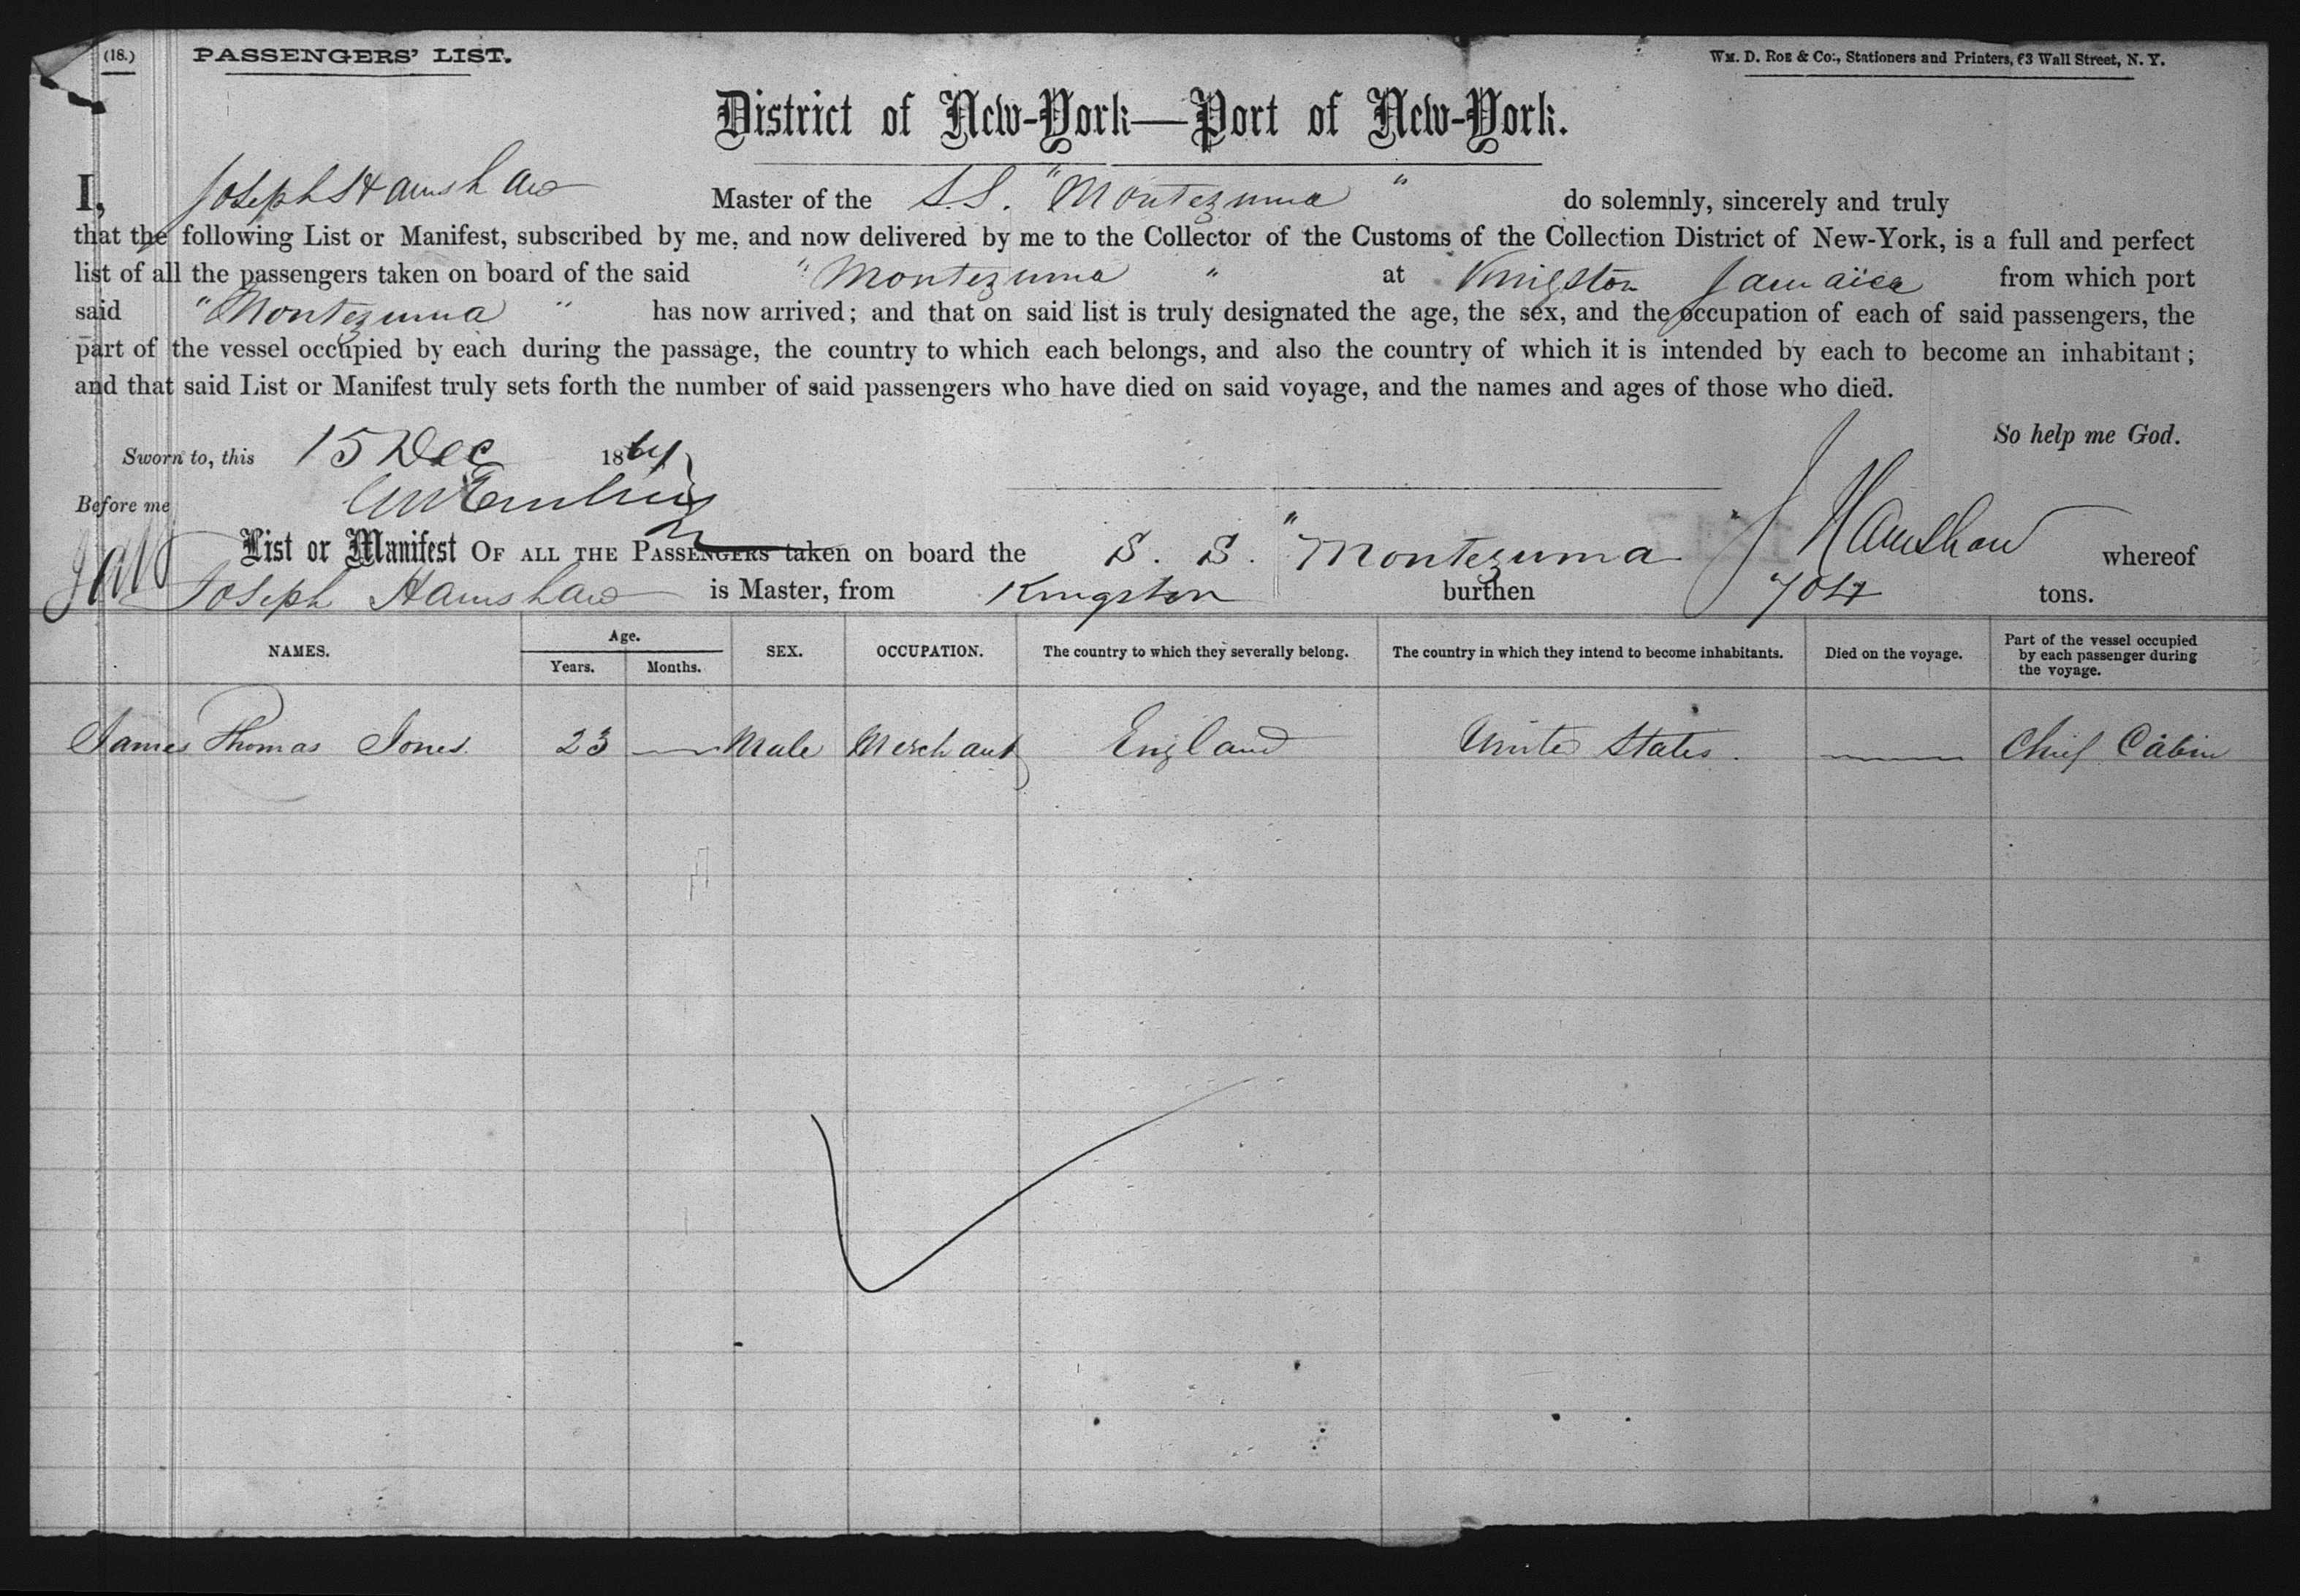 (18.) PASSENGERS' LIST. WM. D. ROE & CO., Stationers and Printers, 63 Wall Street, N. Y.
District of New-York—Port of New-York.
I, Joseph Hamshaw Master of the S.S. "Montezuma" do solemnly, sincerely and truly
that the following List or Manifest, subscribed by me, and now delivered by me to the Collector of the Customs of the Collection District of New-York, is a full and perfect
list of all the passengers taken on board of the said "Montezuma" at Kingston Jamaica from which port
said "Montezuma" has now arrived; and that on said list is truly designated the age, the sex, and the occupation of each of said passengers, the
part of the vessel occupied by each during the passage, the country to which each belongs, and also the country of which it is intended by each to become an inhabitant;
and that said List or Manifest truly sets forth the number of said passengers who have died on said voyage, and the names and ages of those who died.
So help me God.
Sworn to, this 15 Dec 1864
Before me J Hamshaw
List or Manifest OF ALL THE PASSENGERS taken on board the S. S. "Montezuma whereof
Joseph Hamshaw is Master, from Kingston burthen 704 tons.
NAMES. Age. Years. Months. SEX. OCCUPATION. The country to which they severally belong. The country in which they intend to become inhabitants. Died on the voyage. Part of the vessel occupied by each passenger during the voyage.
James Thomas Jones 23 — Male Merchant England United States. — Chief Cabin